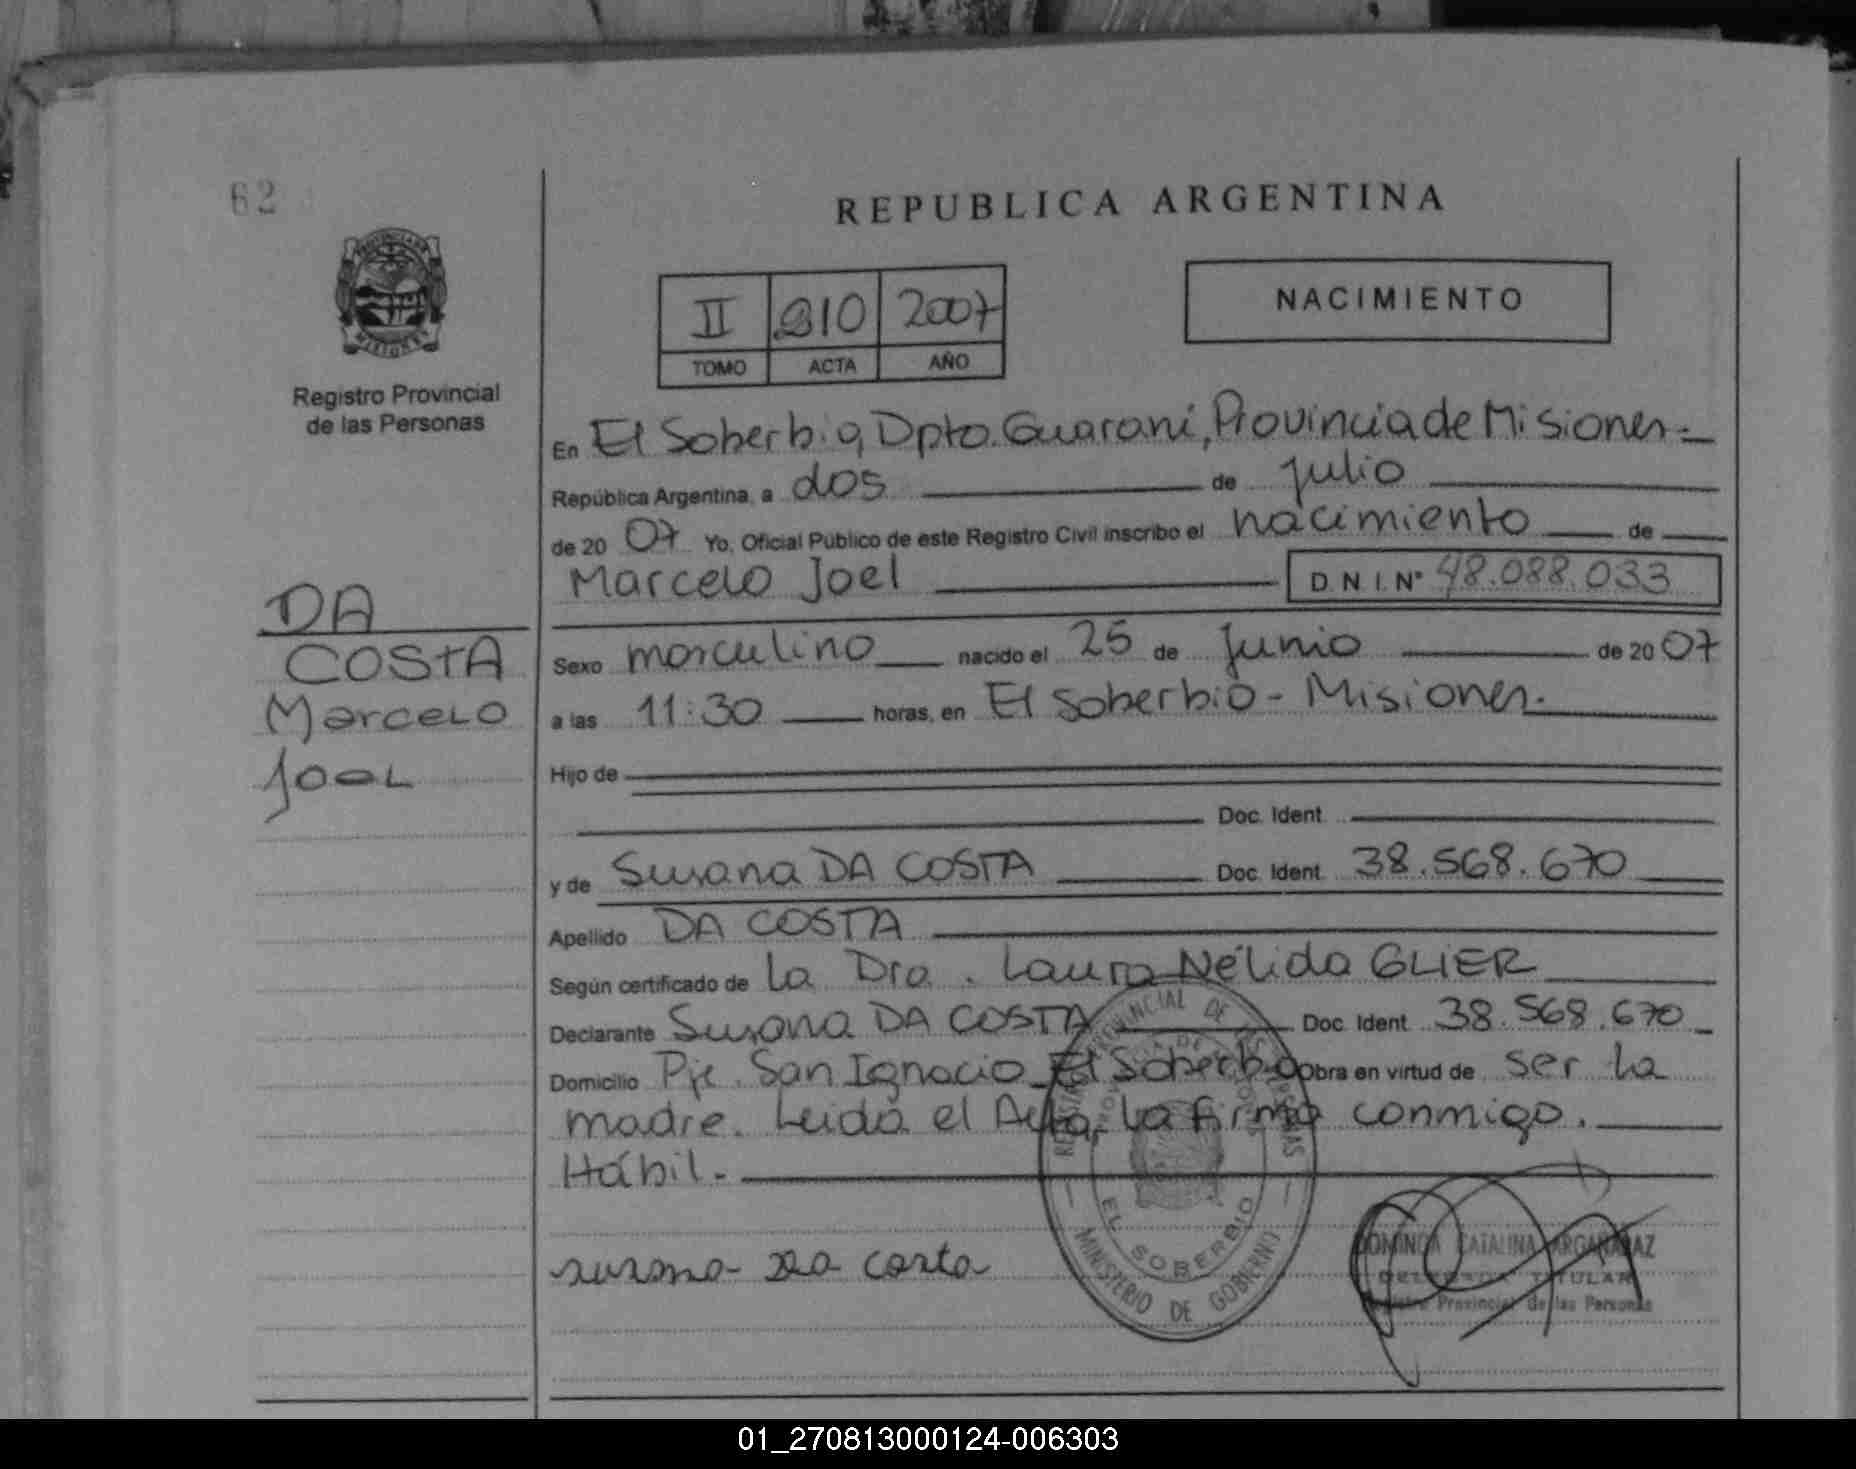 62
REPUBLICA ARGENTINA
II 210 2007
TOMO ACTA AÑO
NACIMIENTO
Registro Provincial
de las Personas
En El Soberbio, Dpto. Guaraní, Provincia de Misiones.=
República Argentina, a dos de julio
de 20 07 Yo, Oficial Público de este Registro Civil inscribo el nacimiento de
Marcelo Joel D.N.I.Nº 48.088.033
DA
COSTA
Marcelo
Joel
Sexo masculino nacido el 25 de Junio de 20 07
a las 11:30 horas, en El Soberbio - Misiones.
Hijo de
Doc. Ident.
y de Susana DA COSTA Doc. Ident. 38.568.670
Apellido DA COSTA
Según certificado de la Dra. Laura Nélida GLIER
Declarante Susana DA COSTA Doc. Ident. 38.568.670
Domicilio Pje. San Ignacio El Soberbio Obra en virtud de ser la
madre. Leida el Acta, la firma conmigo.
Hábil.-
susana da costa
REGISTRO PROVINCIAL DE LAS PERSONAS
PROVINCIA DE MISIONES
EL SOBERBIO
MINISTERIO DE GOBIERNO
DOMINGA CATALINA ARGAÑARAZ
DELEGADA TITULAR
Registro Provincial de las Personas
01_270813000124-006303